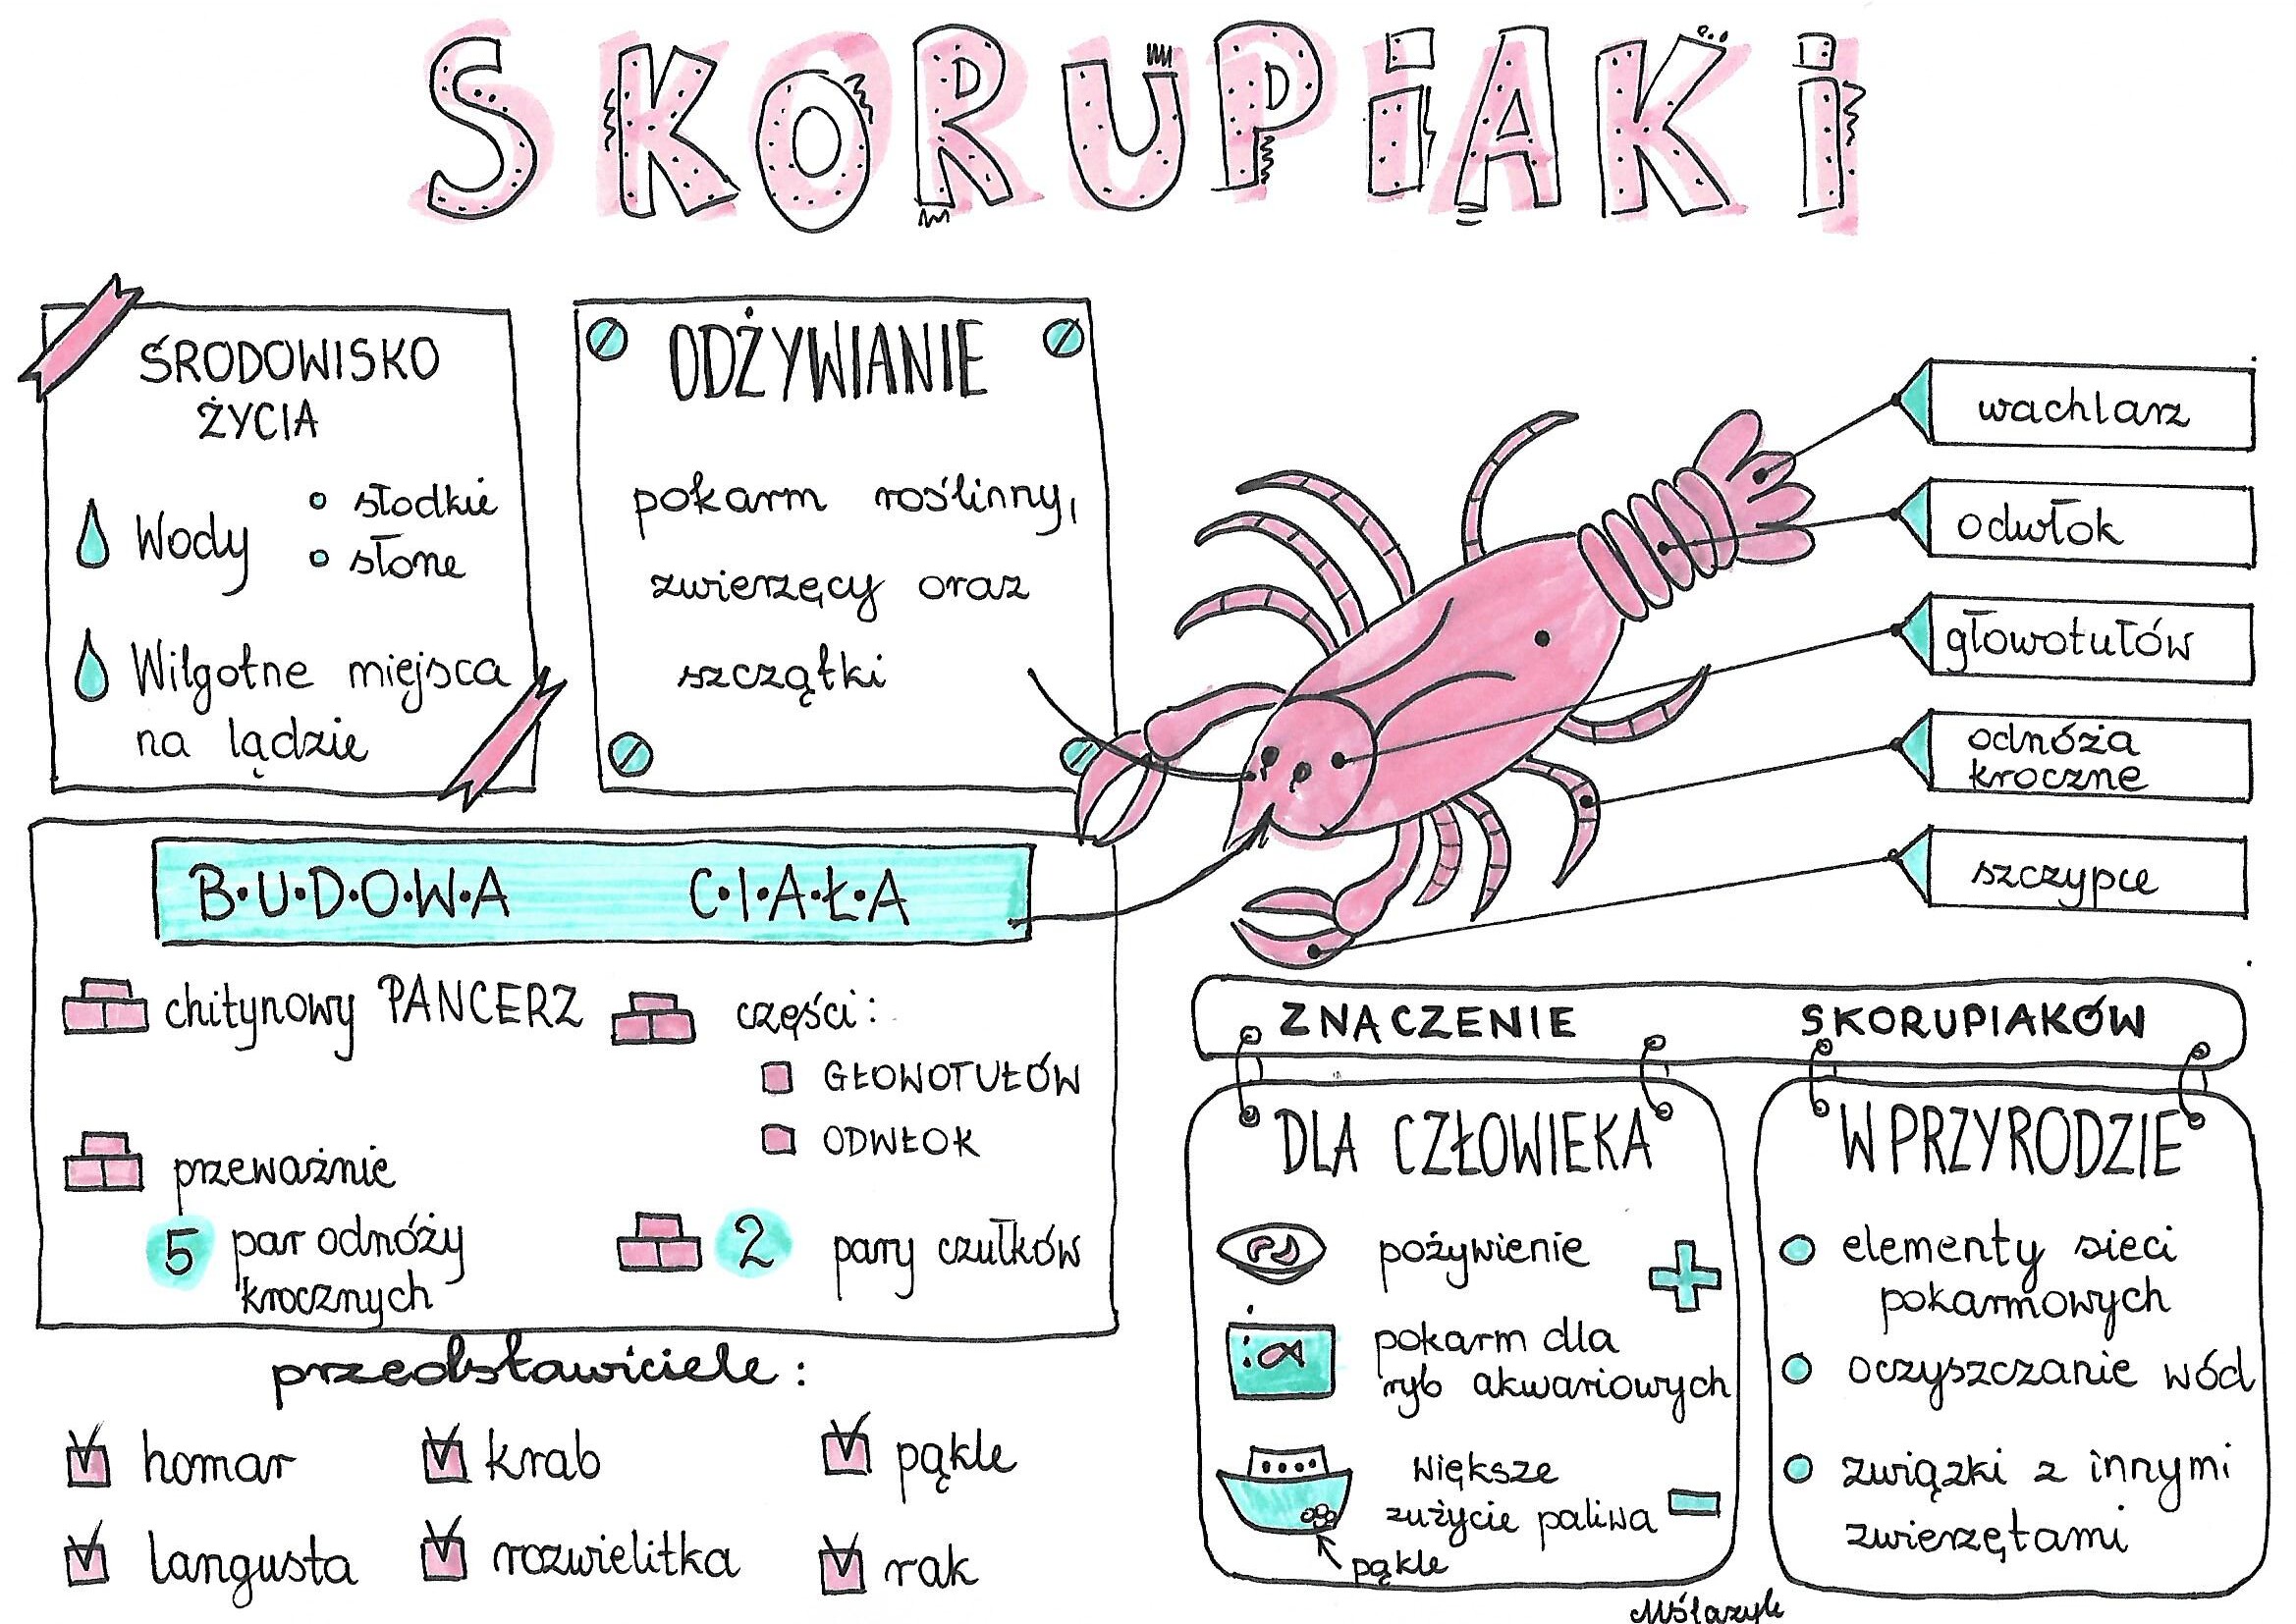 SKORUPiAKi
ŚRODOWISKO
ŻYCIA
Wody
słodkie
słone
Wilgotne miejsca
na lądzie
ODŻYWIANIE
pokarm roślinny,
zwierzęcy oraz
szczątki
wachlarz
odwłok
głowotułów
odnóża
kroczne
szczypce
B·U·D·O·W·A C·I·A·Ł·A
chitynowy PANCERZ
części:
GŁOWOTUŁÓW
ODWŁOK
przeważnie
5 par odnóży
krocznych
2 pary czułków
przedstawiciele:
homar
krab
pąkle
langusta
rozwielitka
rak
ZNACZENIE SKORUPIAKÓW
DLA CZŁOWIEKA
pożywienie
pokarm dla
ryb akwariowych
większe
zużycie paliwa
pąkle
W PRZYRODZIE
elementy sieci
pokarmowych
oczyszczanie wód
związki z innymi
zwierzętami